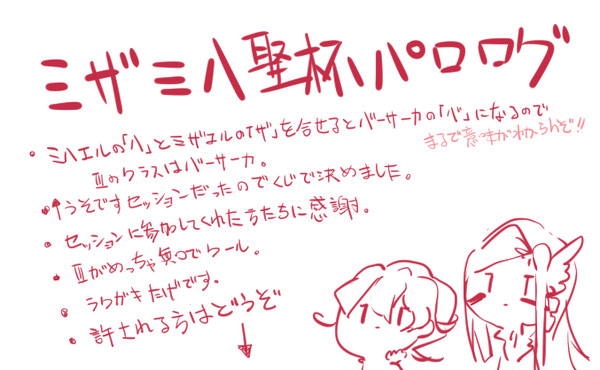 ミザミハ聖杯パロログ
・ミハエルの「ハ」とミザエルの「ザ」を合せるとバーサーカの「バ」になるので
まるで意味がわからんぞ!!
Ⅲのクラスはバーサーカ。
・↑うそですセッションだったのでくじで決めました。
・セッションに参加してくれた方たちに感謝。
・Ⅲがめっちゃ無口でクール。
・ラクガキたけです。
・許される方はどうぞ
↓